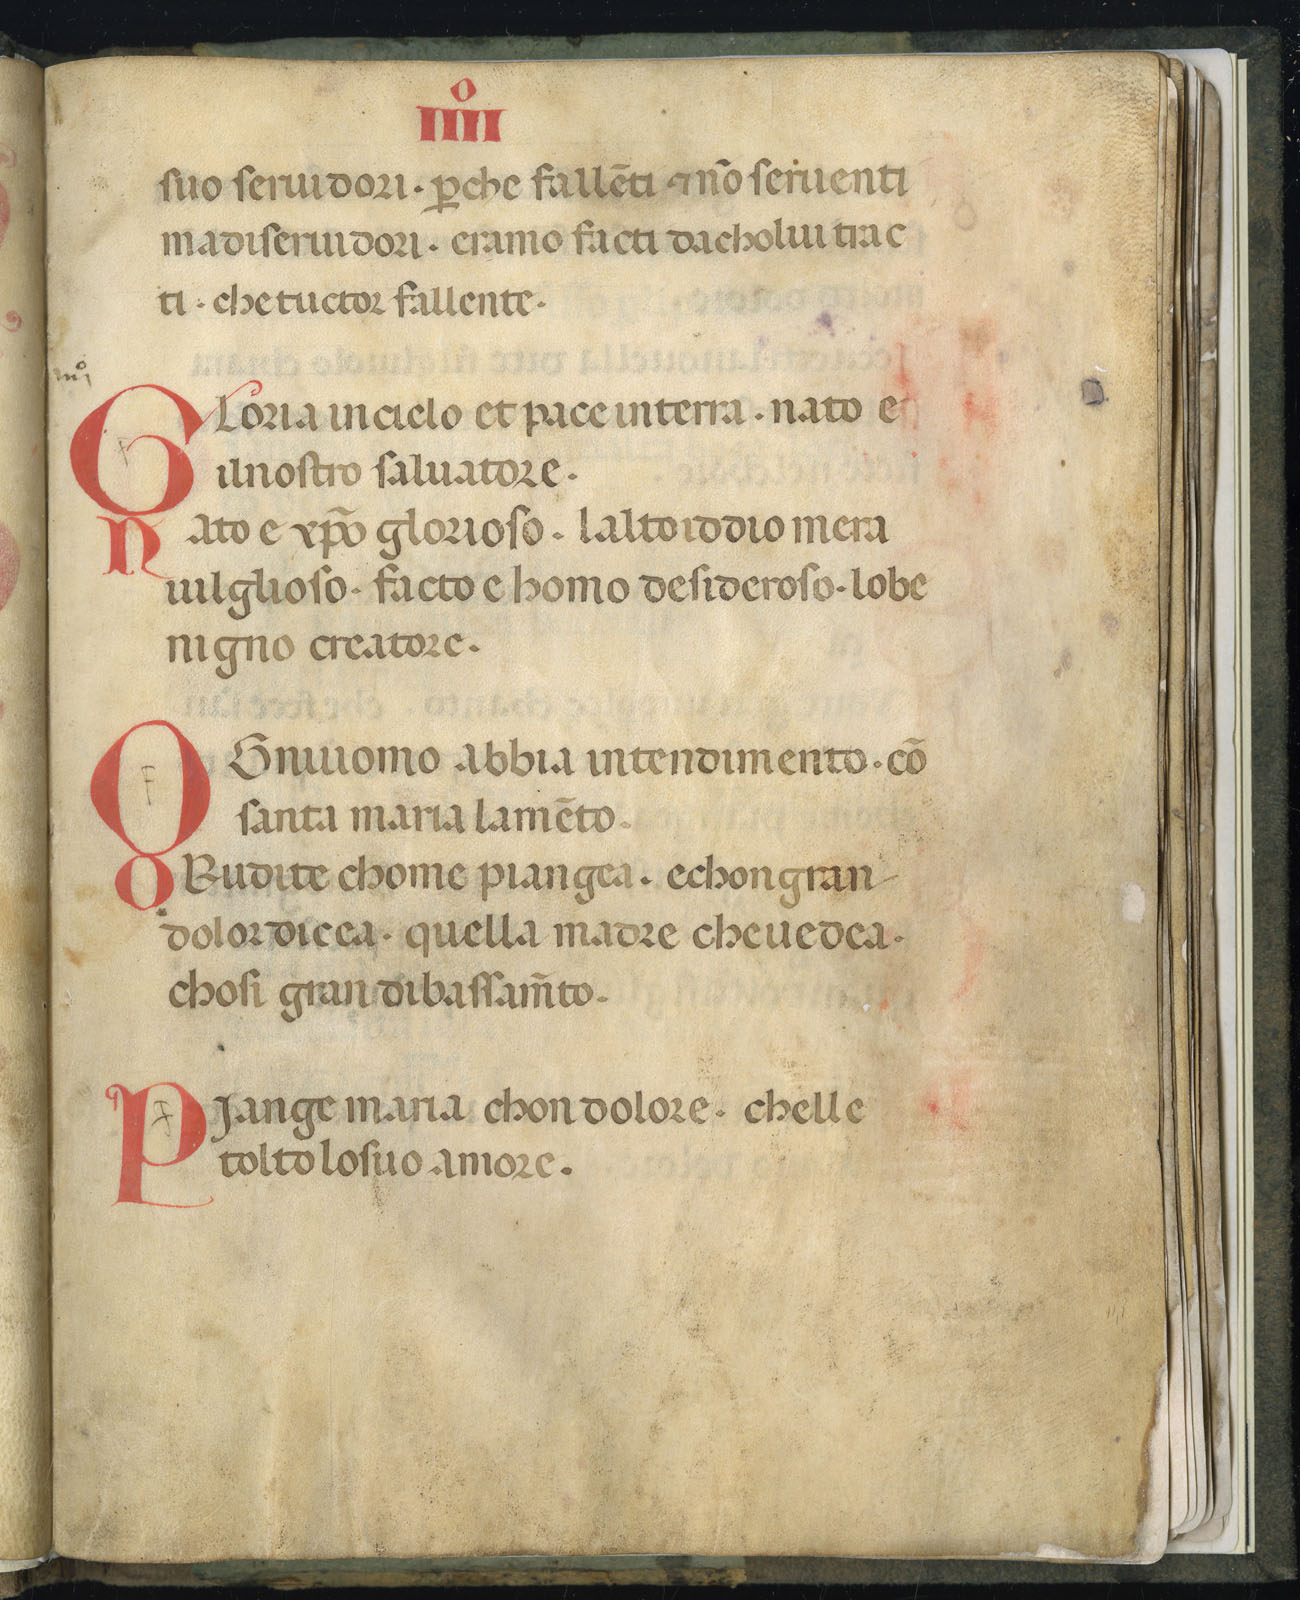 IIIIo
suo seruidori · p̱che fallēti ⁊ nō seruenti
madiseruidori · eramo facti dacholui trac
ti · che tuctor fallente ·
Gloria in cielo et pace interra · nato e
ilnostro saluatore ·
Nato e xp̄o glorioso · lalto iddio mera
uilglioso · facto e homo desideroso · lobe
nigno creatore ·
OGniuomo abbia intendimento · cō
santa maria lamēto ·
ORudite chome piangea · echongran
dolor dicea · quella madre cheuedea ·
chosi gran dibassam̄to ·
PJange maria chon dolore · chelle
tolto losuo amore ·